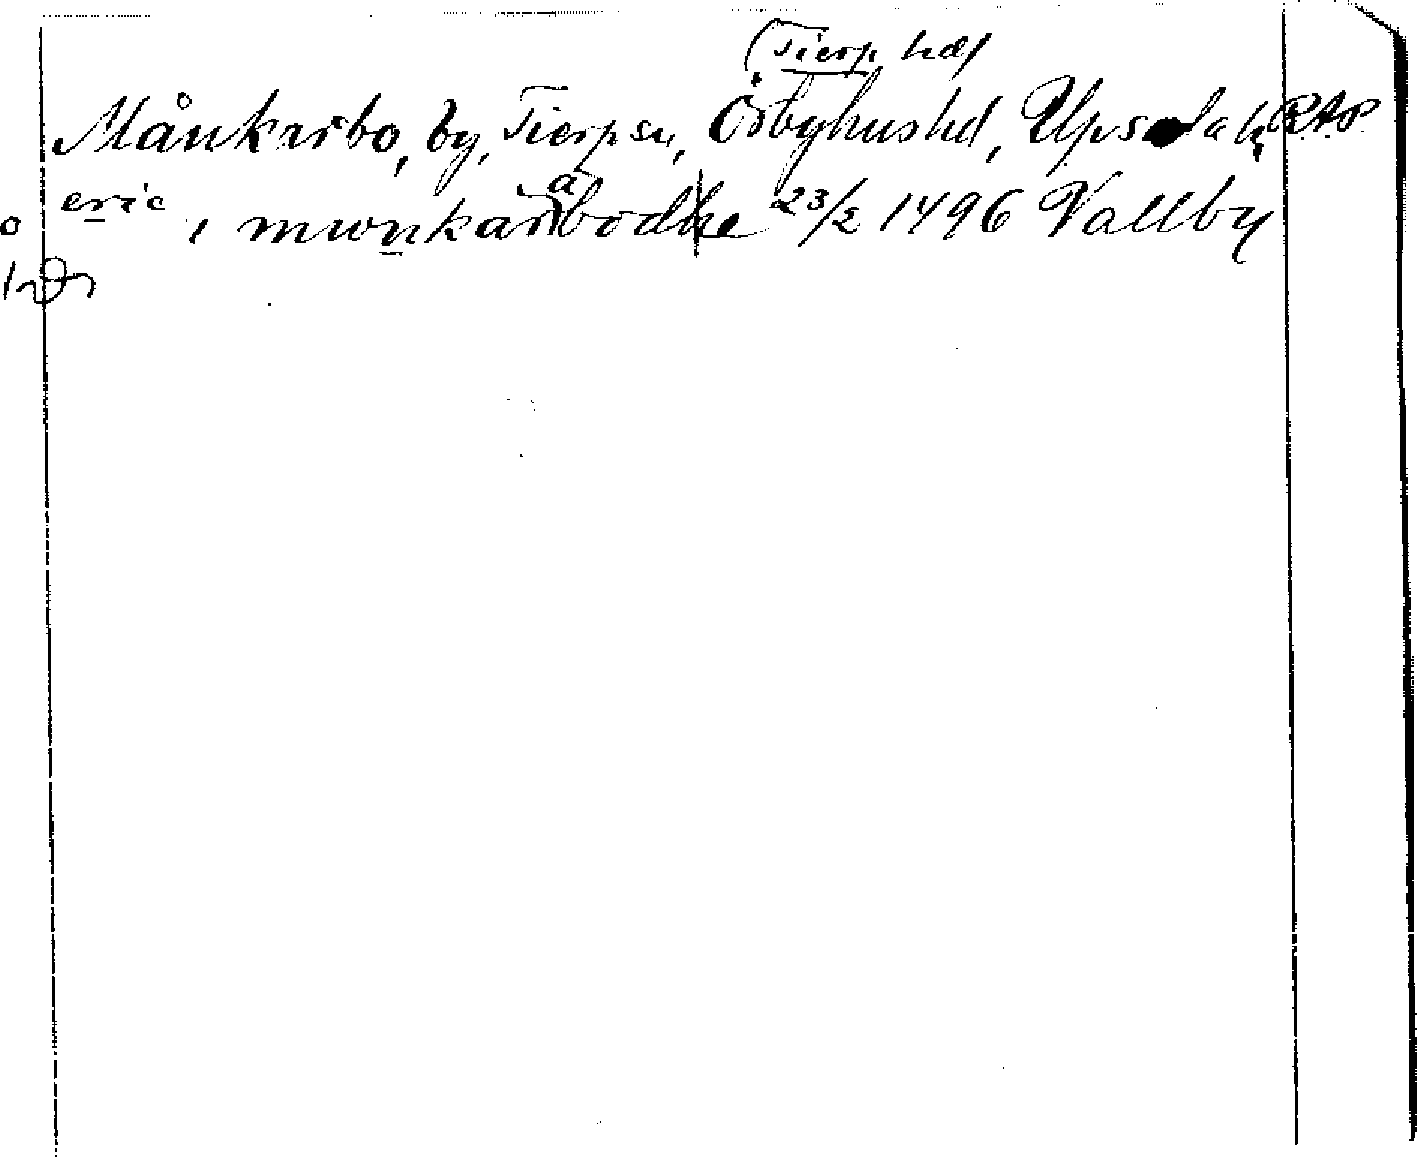 (Tierp hd)
Månkarbo, by, Tierp sn, Örbyhus hd, Upsala l. RAP
eric i munkarabodhe 23/2 1496 Vallby